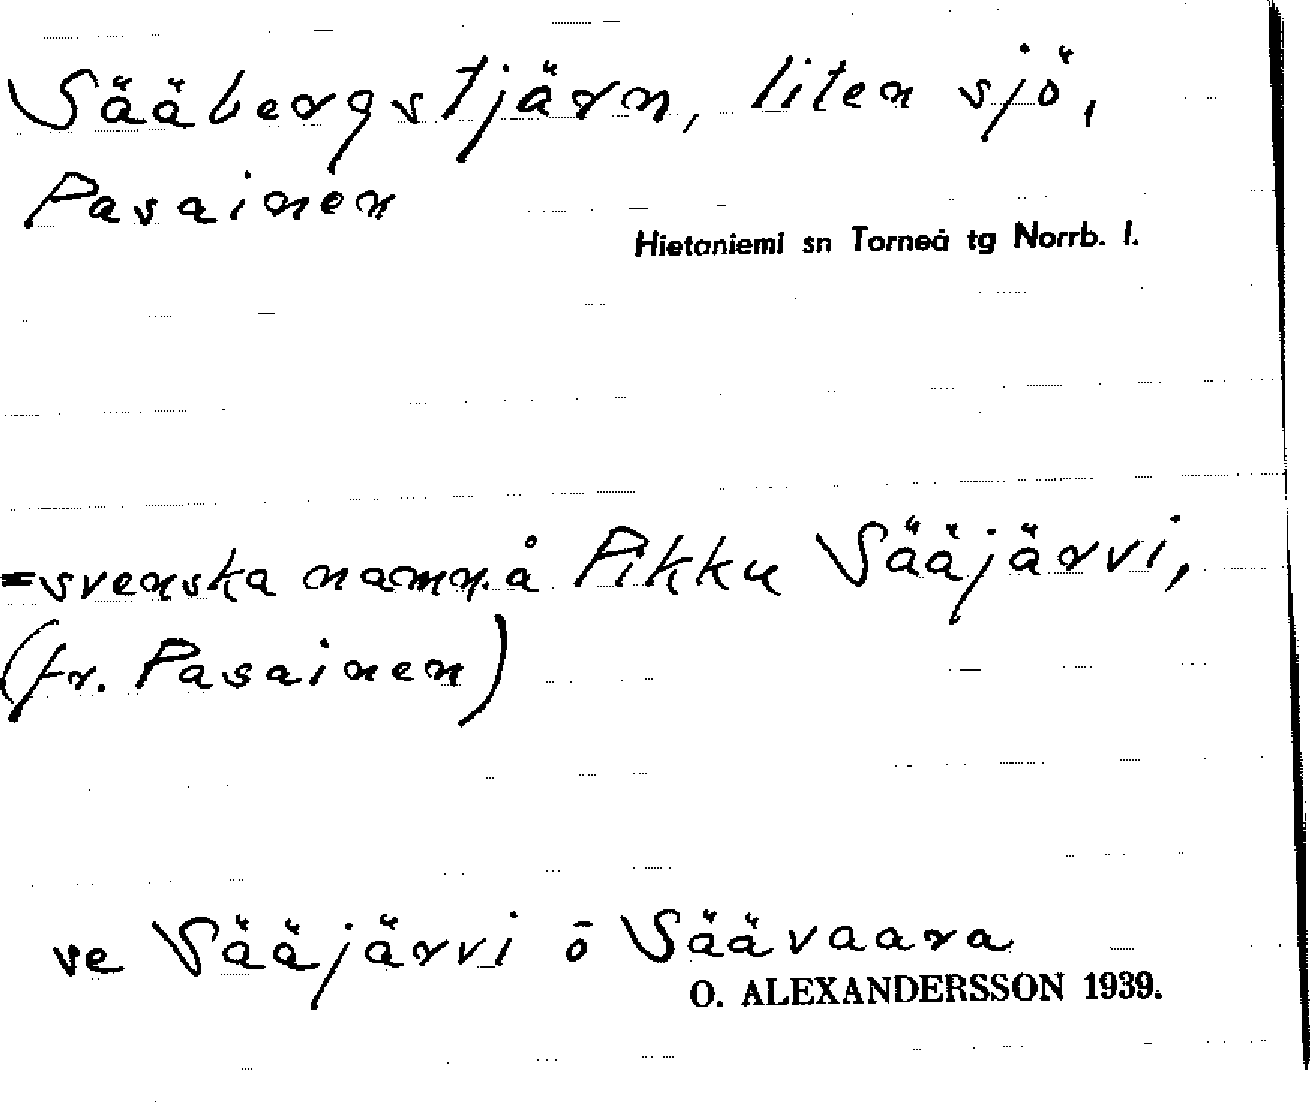 Sääbergstjärn, liten sjö,
Pasainen
Hietaniemi sn Torneå tg Norrb. l.
=svenska namn. å Pikku Sääjärvi,
(fr. Pasainen)
ve Sääjärvi ō Säävaara
O. ALEXANDERSSON 1939.